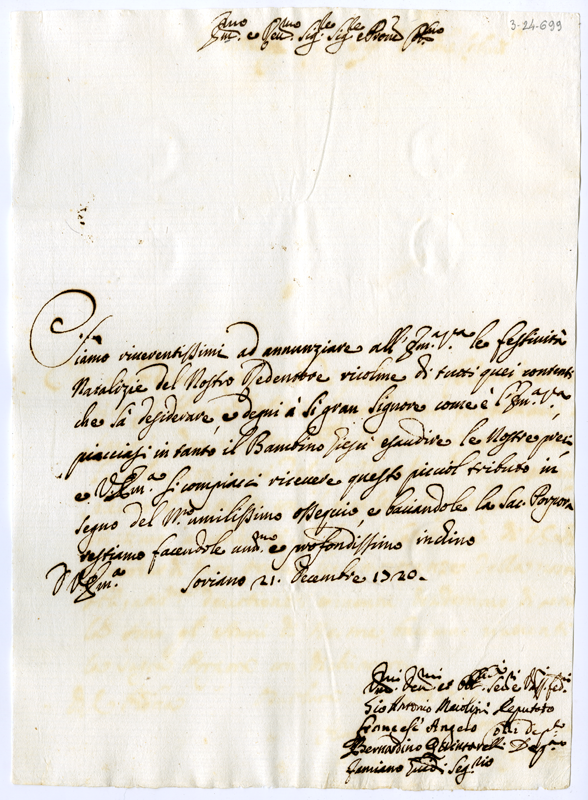 3-24-699
Emo e Rmo Sigre Sigre e Prone
Siamo riverentissimi ad annunziare all'Emza Vra le festività
Natalizie del Nostro Redentore ricolme di tutti quei contenti
che sà desiderare, e degni à sì gran Signore come è l'Emza Vra,
piacciasi in tanto il Bambino Giesù esaudire le Nostre preci
e V. Emza si compiacci ricevere questo picciol tributo in
segno del Nro umilissimo ossequio, e baciandole la Sac. Porpora
restiamo facendole profondissimo inchino
D V Emza Soriano 21. Decembre 1720.
Gio Antonio Deputato
Angelo
Bernardino
Seg.rio